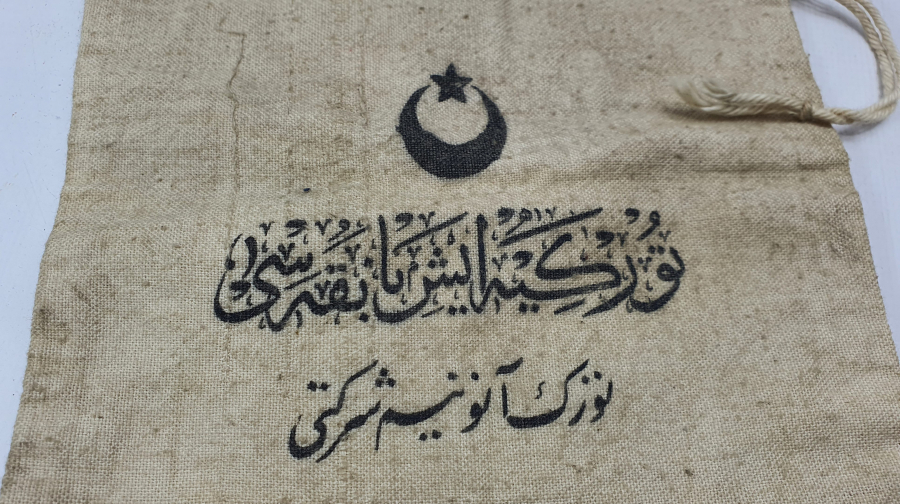 توركيه ايش بانقه سى
تورك آنونيم شركتى